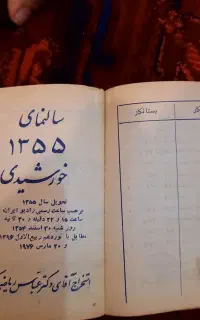 سالنمای
۱۳۵۵
خورشیدی
تحویل سال ۱۳۵۵
برحسب ساعت رسمی رادیو ایران
ساعت ۱۵ و ۲۲ دقیقه و ۳۰ ثانیه
روز شنبه ۳۰ اسفند ۱۳۵۴
مطابق با نوزدهم ربیع‌الاول ۱۳۹۶
و ۲۰ مارس ۱۹۷۶
استخراج آقای دکتر عباس ریاضی
بستانکار